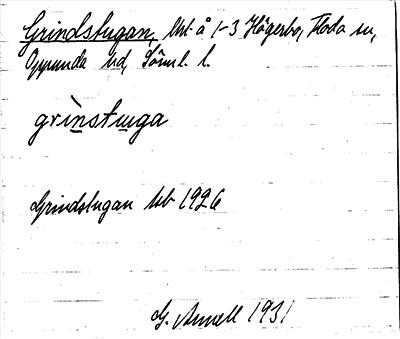 Grindstugan, lht å 1-3 Högerbo, Floda sn,
Oppunda hd, Sörml. l.
grìnstuga
Grindstugan hb 1926
G. Annell 1931